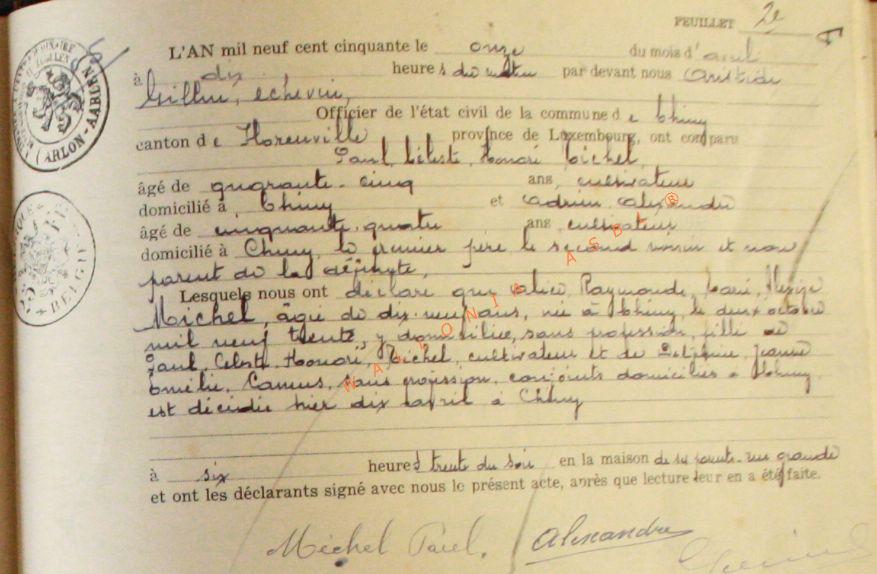 FEUILLET 2e
L'AN mil neuf cent cinquante le onze du mois d'avril
à dix heures du matin par devant nous Aristide
Gillin, échevin,
Officier de l'état civil de la commune de Chiny
canton de Florenville province de Luxembourg, ont comparu
Paul, Céleste, Honoré Michel,
âgé de quarante-cinq ans, cultivateur
domicilié à Chiny et Adrien Alexandre
âgé de cinquante-quatre ans, cultivateur
domicilié à Chiny, le premier père le second voisin et non
parent de la défunte,
Lesquels nous ont déclaré que Alice, Raymonde, Marie,
Michel, âgée de dix-neuf ans, née à Chiny, le deux octobre
mil neuf trente, y domiciliée, sans profession, fille de
Paul, Céleste, Honoré, Michel, cultivateur et de Delphine, Jeanne
Emélie, Camus, sans profession, conjoints domiciliés à Chiny
est décédée hier dix avril à Chiny
à six heures trente du soir en la maison de ses parents rue grande
et ont les déclarants signé avec nous le présent acte, après que lecture leur en a été faite.
Michel Paul. Alexandre
ARLON-AARLEN
BELGIE
WALLONIA ASBL ®